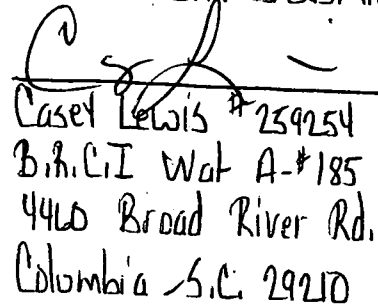 Casey Lewis #259254
B.R.C.I Wat A-#185
4460 Broad River Rd.
Columbia S.C. 29210